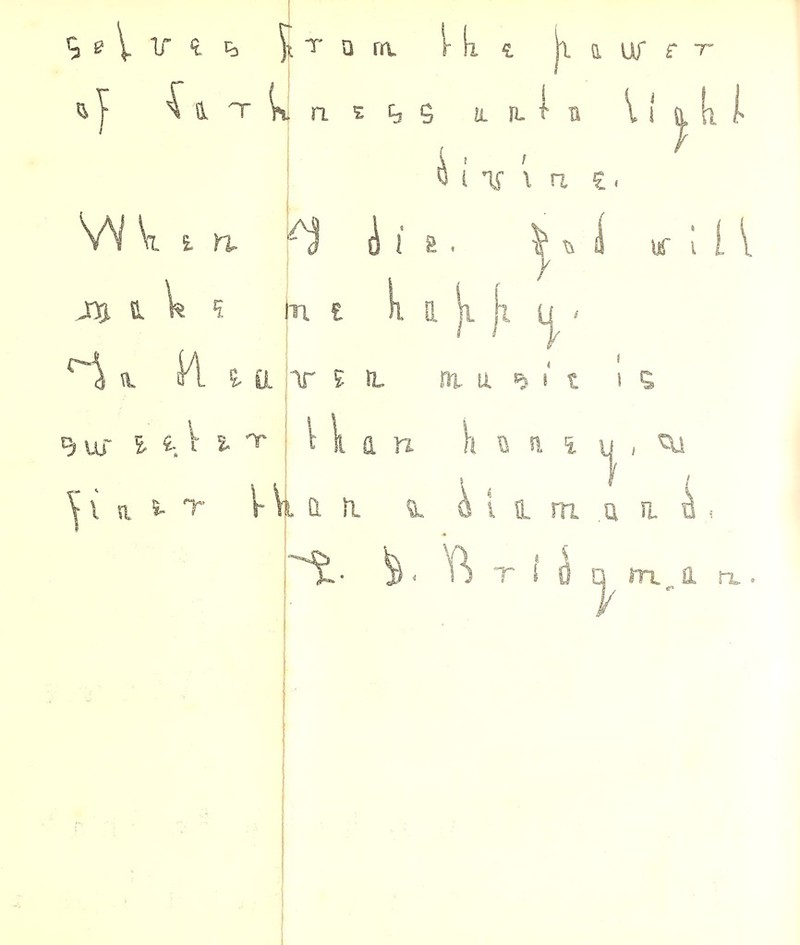 selves from the power
of darkness unto light
divine.
When I die. God will
make me happy.
In Heaven music is
sweeter than honey, &
finer than a diamond.
L. D. Bridgman.